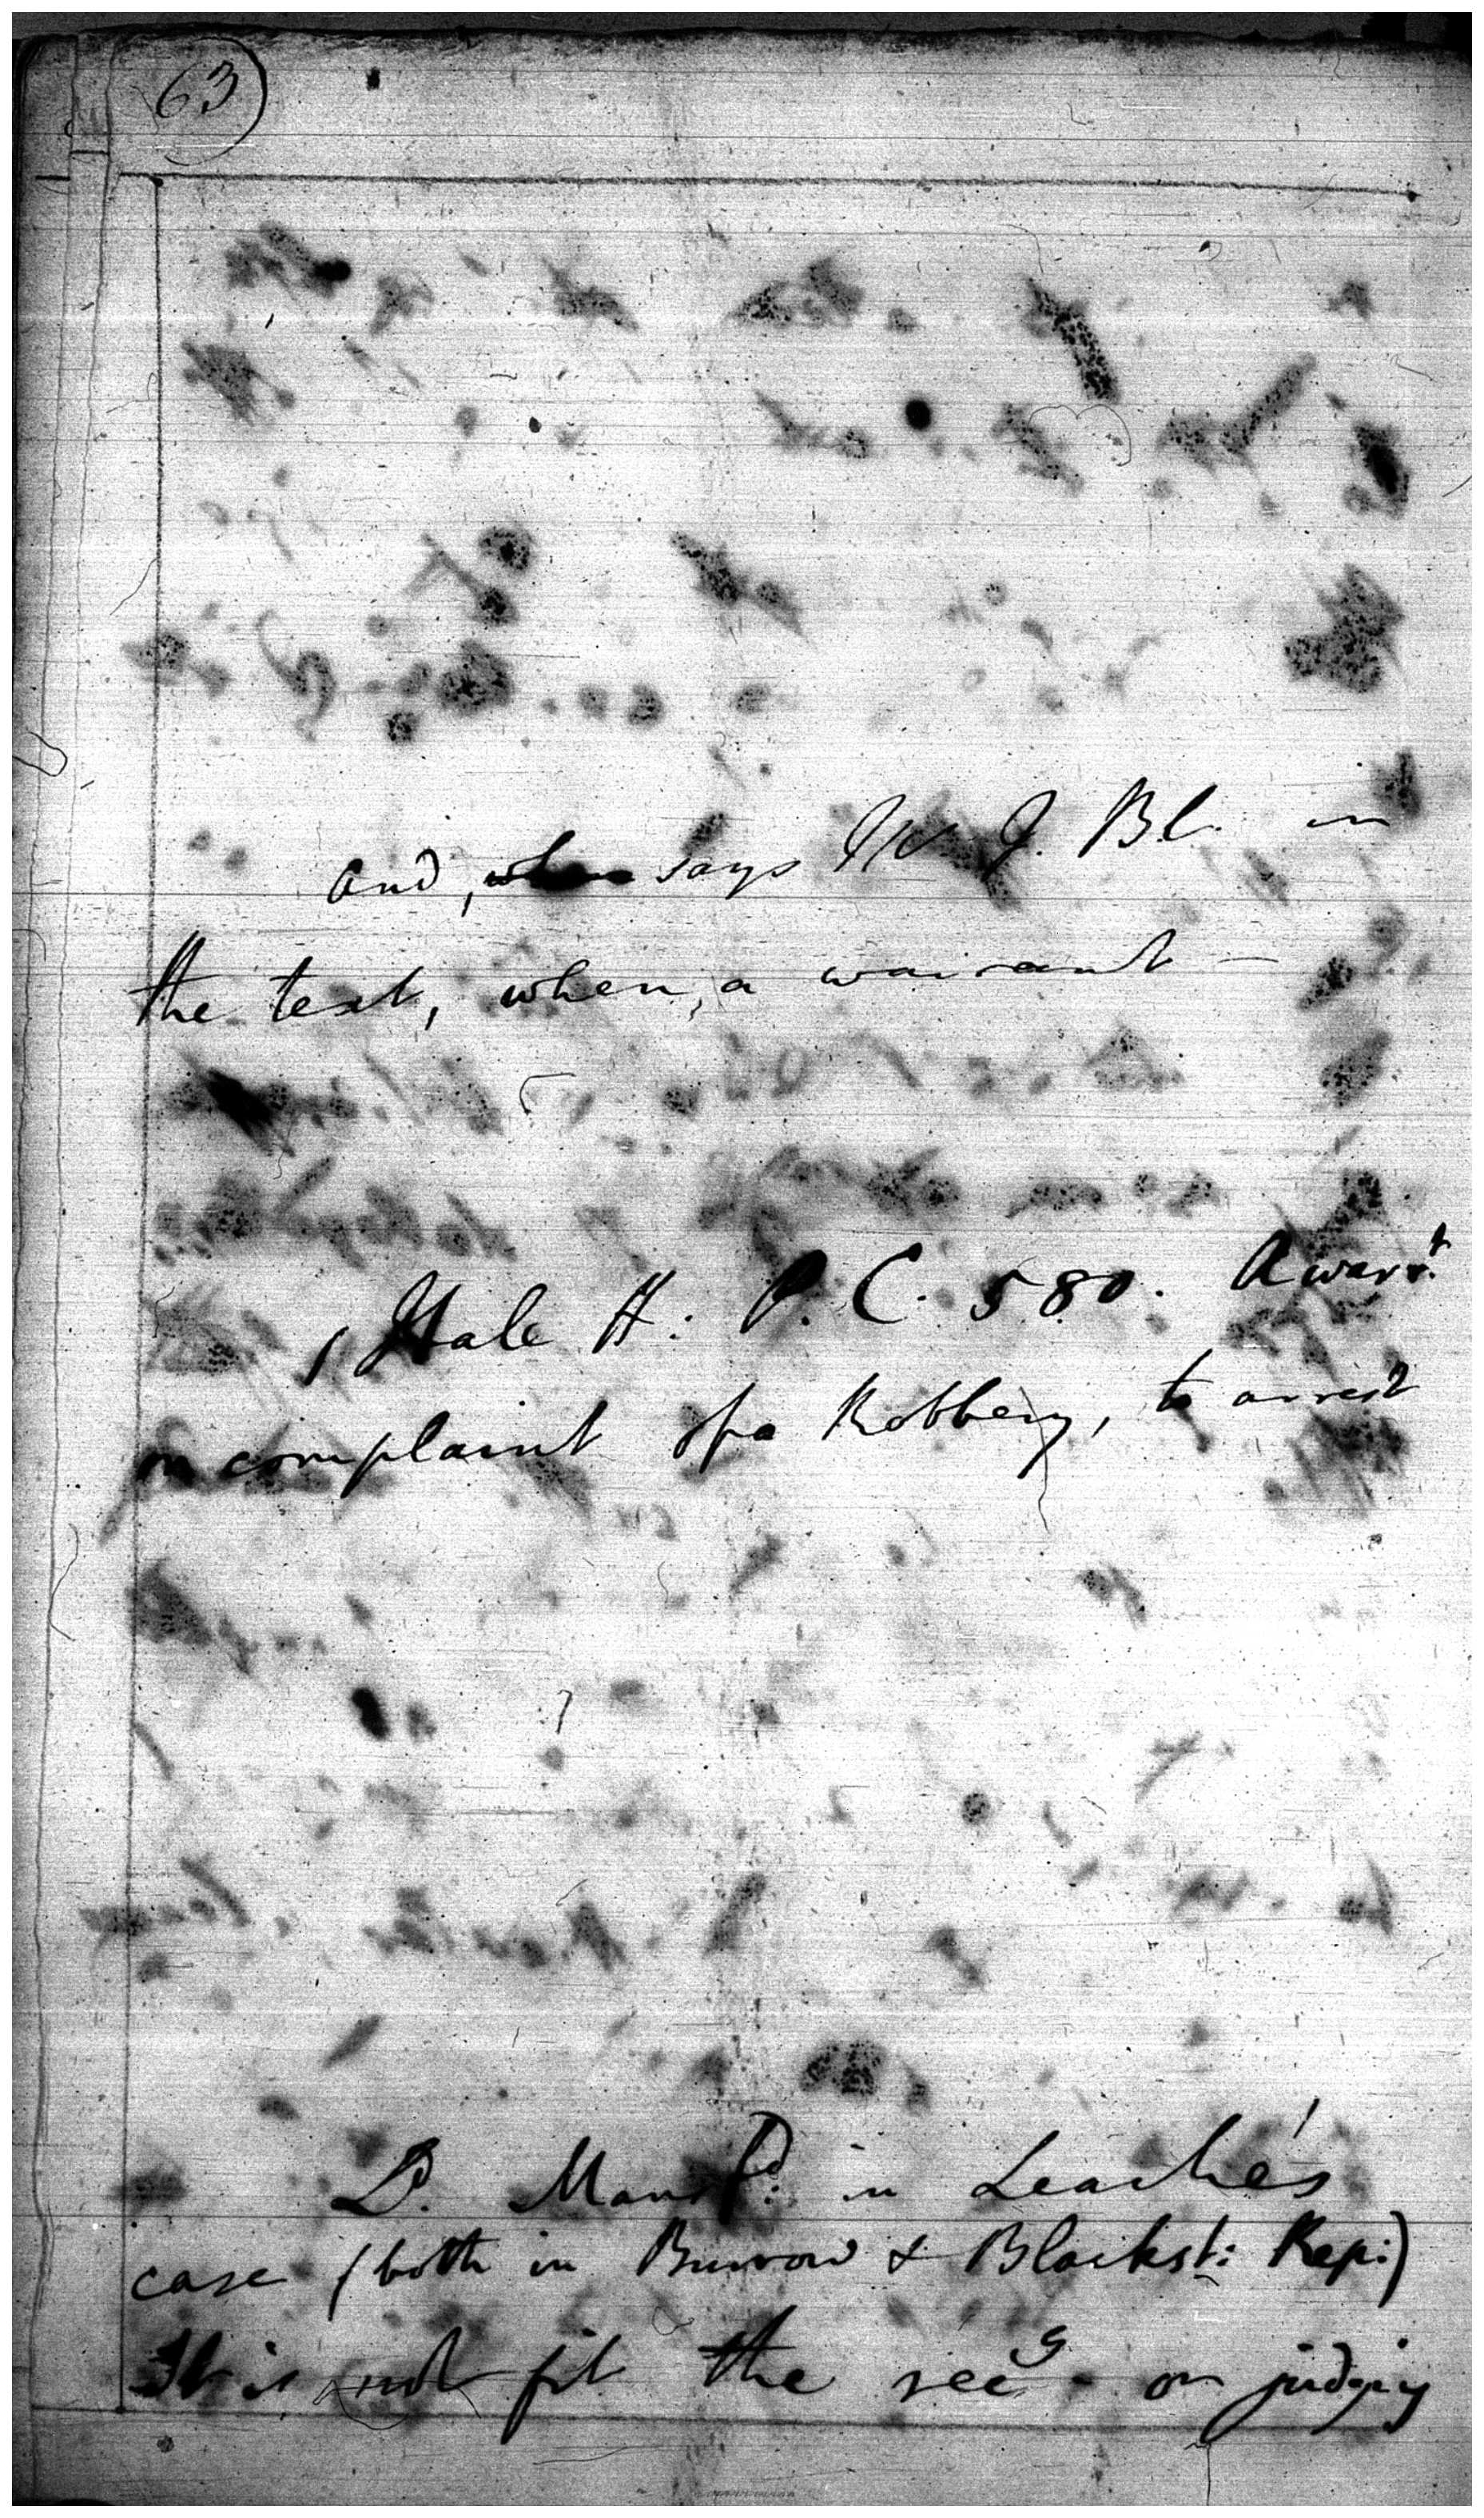 63
and, says W J. Bl. in
the text, when, a warrant —
1 Hale H: P. C. 580. A warrt.
on complaint of a Robbery, to arrest
Ld. Mansfd: in Leach's
case (both in Burrow & Blackst: Rep:)
It is not fit the recg. or judging